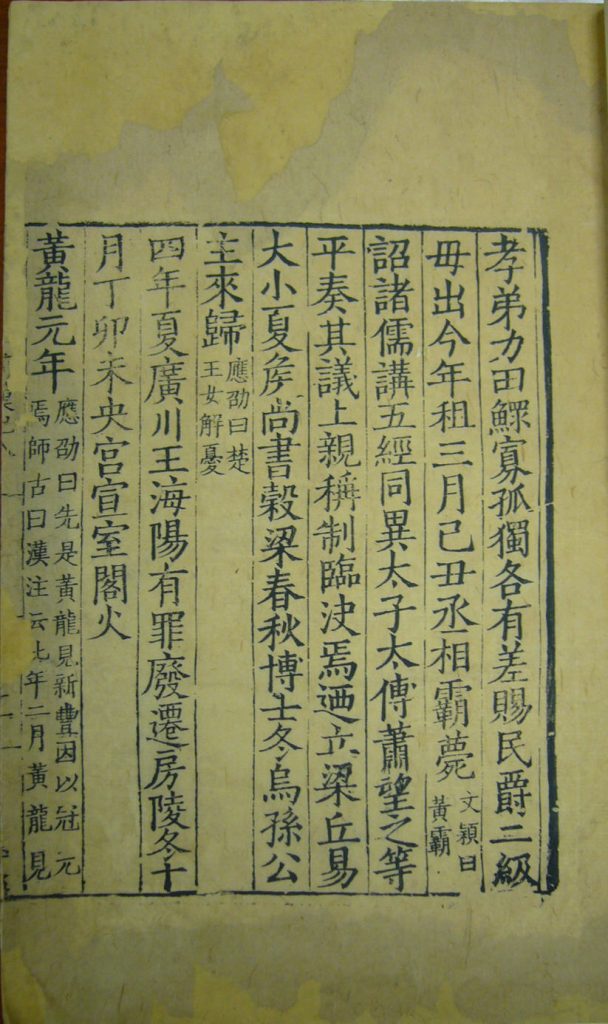 孝弟力田鰥寡孤獨各有差賜民爵二級
毋出今年租三月己丑丞相霸薨文穎曰黃霸
詔諸儒講五經同異太子太傅蕭望之等
平奏其議上親稱制臨決焉迺立梁丘易
大小夏侯尚書穀梁春秋博士冬烏孫公
主來歸應劭曰楚王女解憂
四年夏廣川王海陽有罪廢遷房陵冬十
月丁卯未央宮宣室閣火
黃龍元年應劭曰先是黃龍見新豐因以冠元焉師古曰漢注云此年二月黃龍見